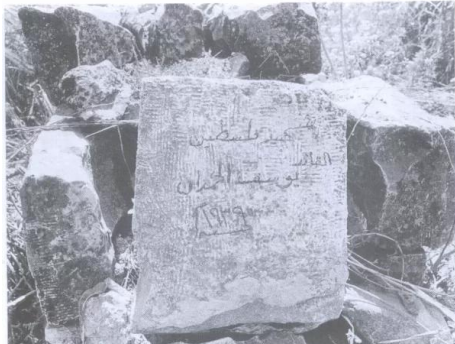 شهيد فلسطين
القائد
يوسف الحمدان
١٩٣٩